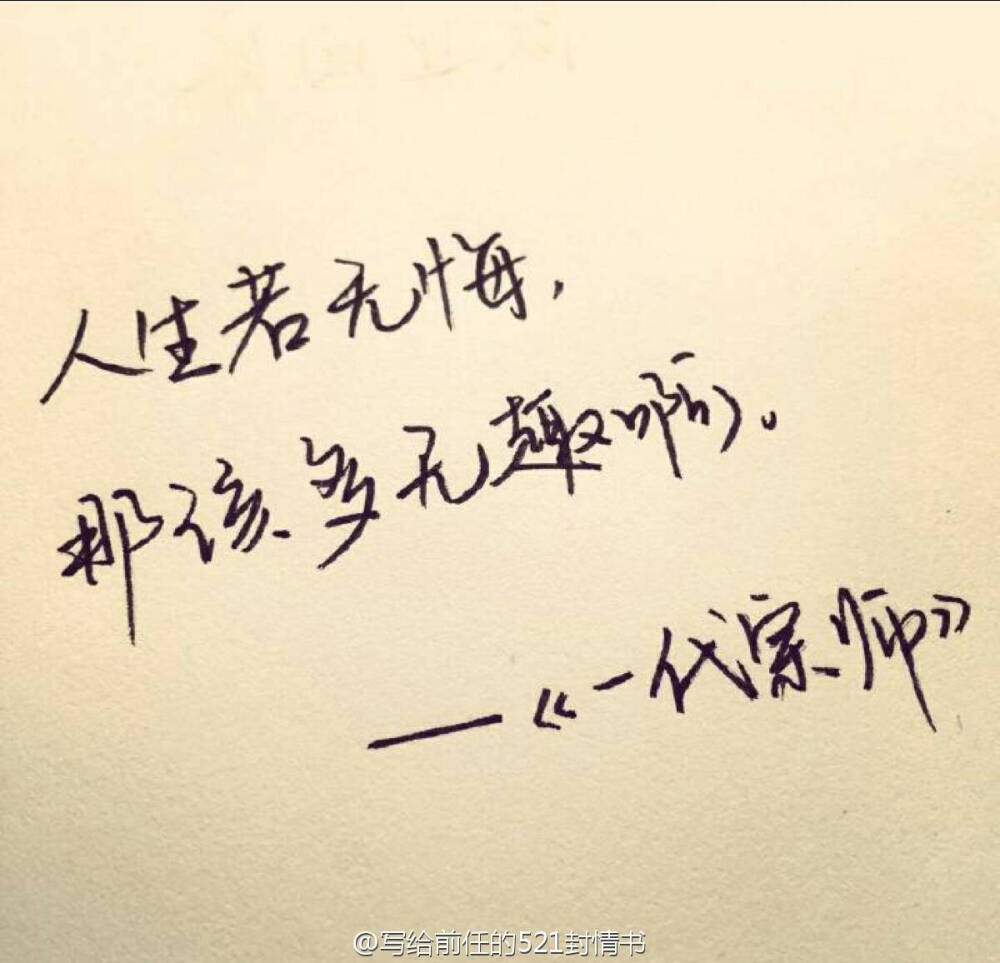 人生若无悔，
那该多无趣啊。
——《一代宗师》
@写给前任的521封情书